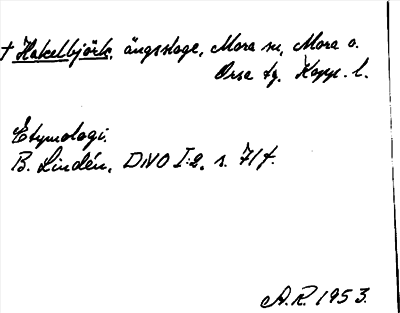 † Hakelbjörk, ängsslage, Mora sn, Mora o.
Orsa tg. Kopp. l.
Etymologi.
B. Lindén, DNO I:2, s. 71f.
A.R. 1953.